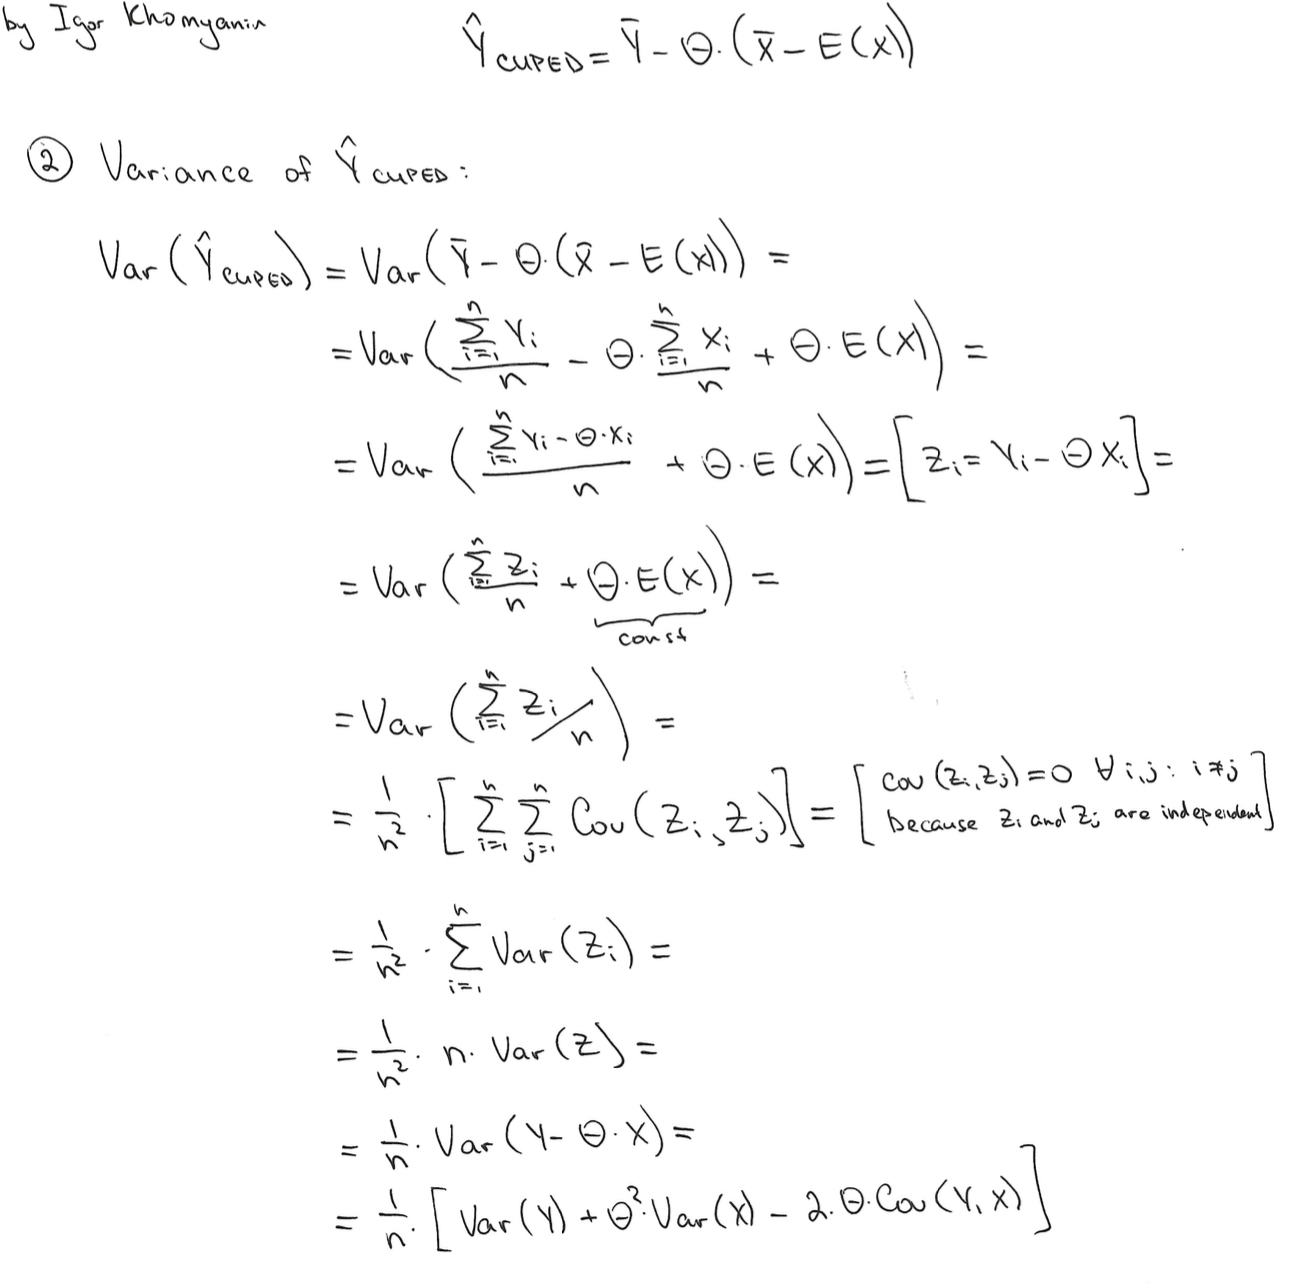 by Igor Khomyanin
Ŷ_CUPED = Ȳ - Θ·(X̄ - E(X))
② Variance of Ŷ_CUPED:
Var(Ŷ_CUPED) = Var(Ȳ - Θ·(X̄ - E(X))) =
= Var( (∑_{i=1}^{n} Y_i)/n - Θ·(∑_{i=1}^{n} X_i)/n + Θ·E(X) ) =
= Var( (∑_{i=1}^{n} Y_i - Θ·X_i)/n + Θ·E(X) ) = [ Z_i = Y_i - ΘX_i ] =
= Var( (∑_{i=1}^{n} Z_i)/n + Θ·E(X) ) =
const
= Var( ∑_{i=1}^{n} Z_i/n ) =
= 1/n² · [ ∑_{i=1}^{n} ∑_{j=1}^{n} Cov(Z_i, Z_j) ] = [ cov(Z_i, Z_j) = 0 ∀ i,j: i≠j
because Z_i and Z_j are independent ]
= 1/n² · ∑_{i=1}^{n} Var(Z_i) =
= 1/n² · n · Var(Z) =
= 1/n · Var(Y - Θ·X) =
= 1/n · [ Var(Y) + Θ²·Var(X) - 2·Θ·Cov(Y, X) ]